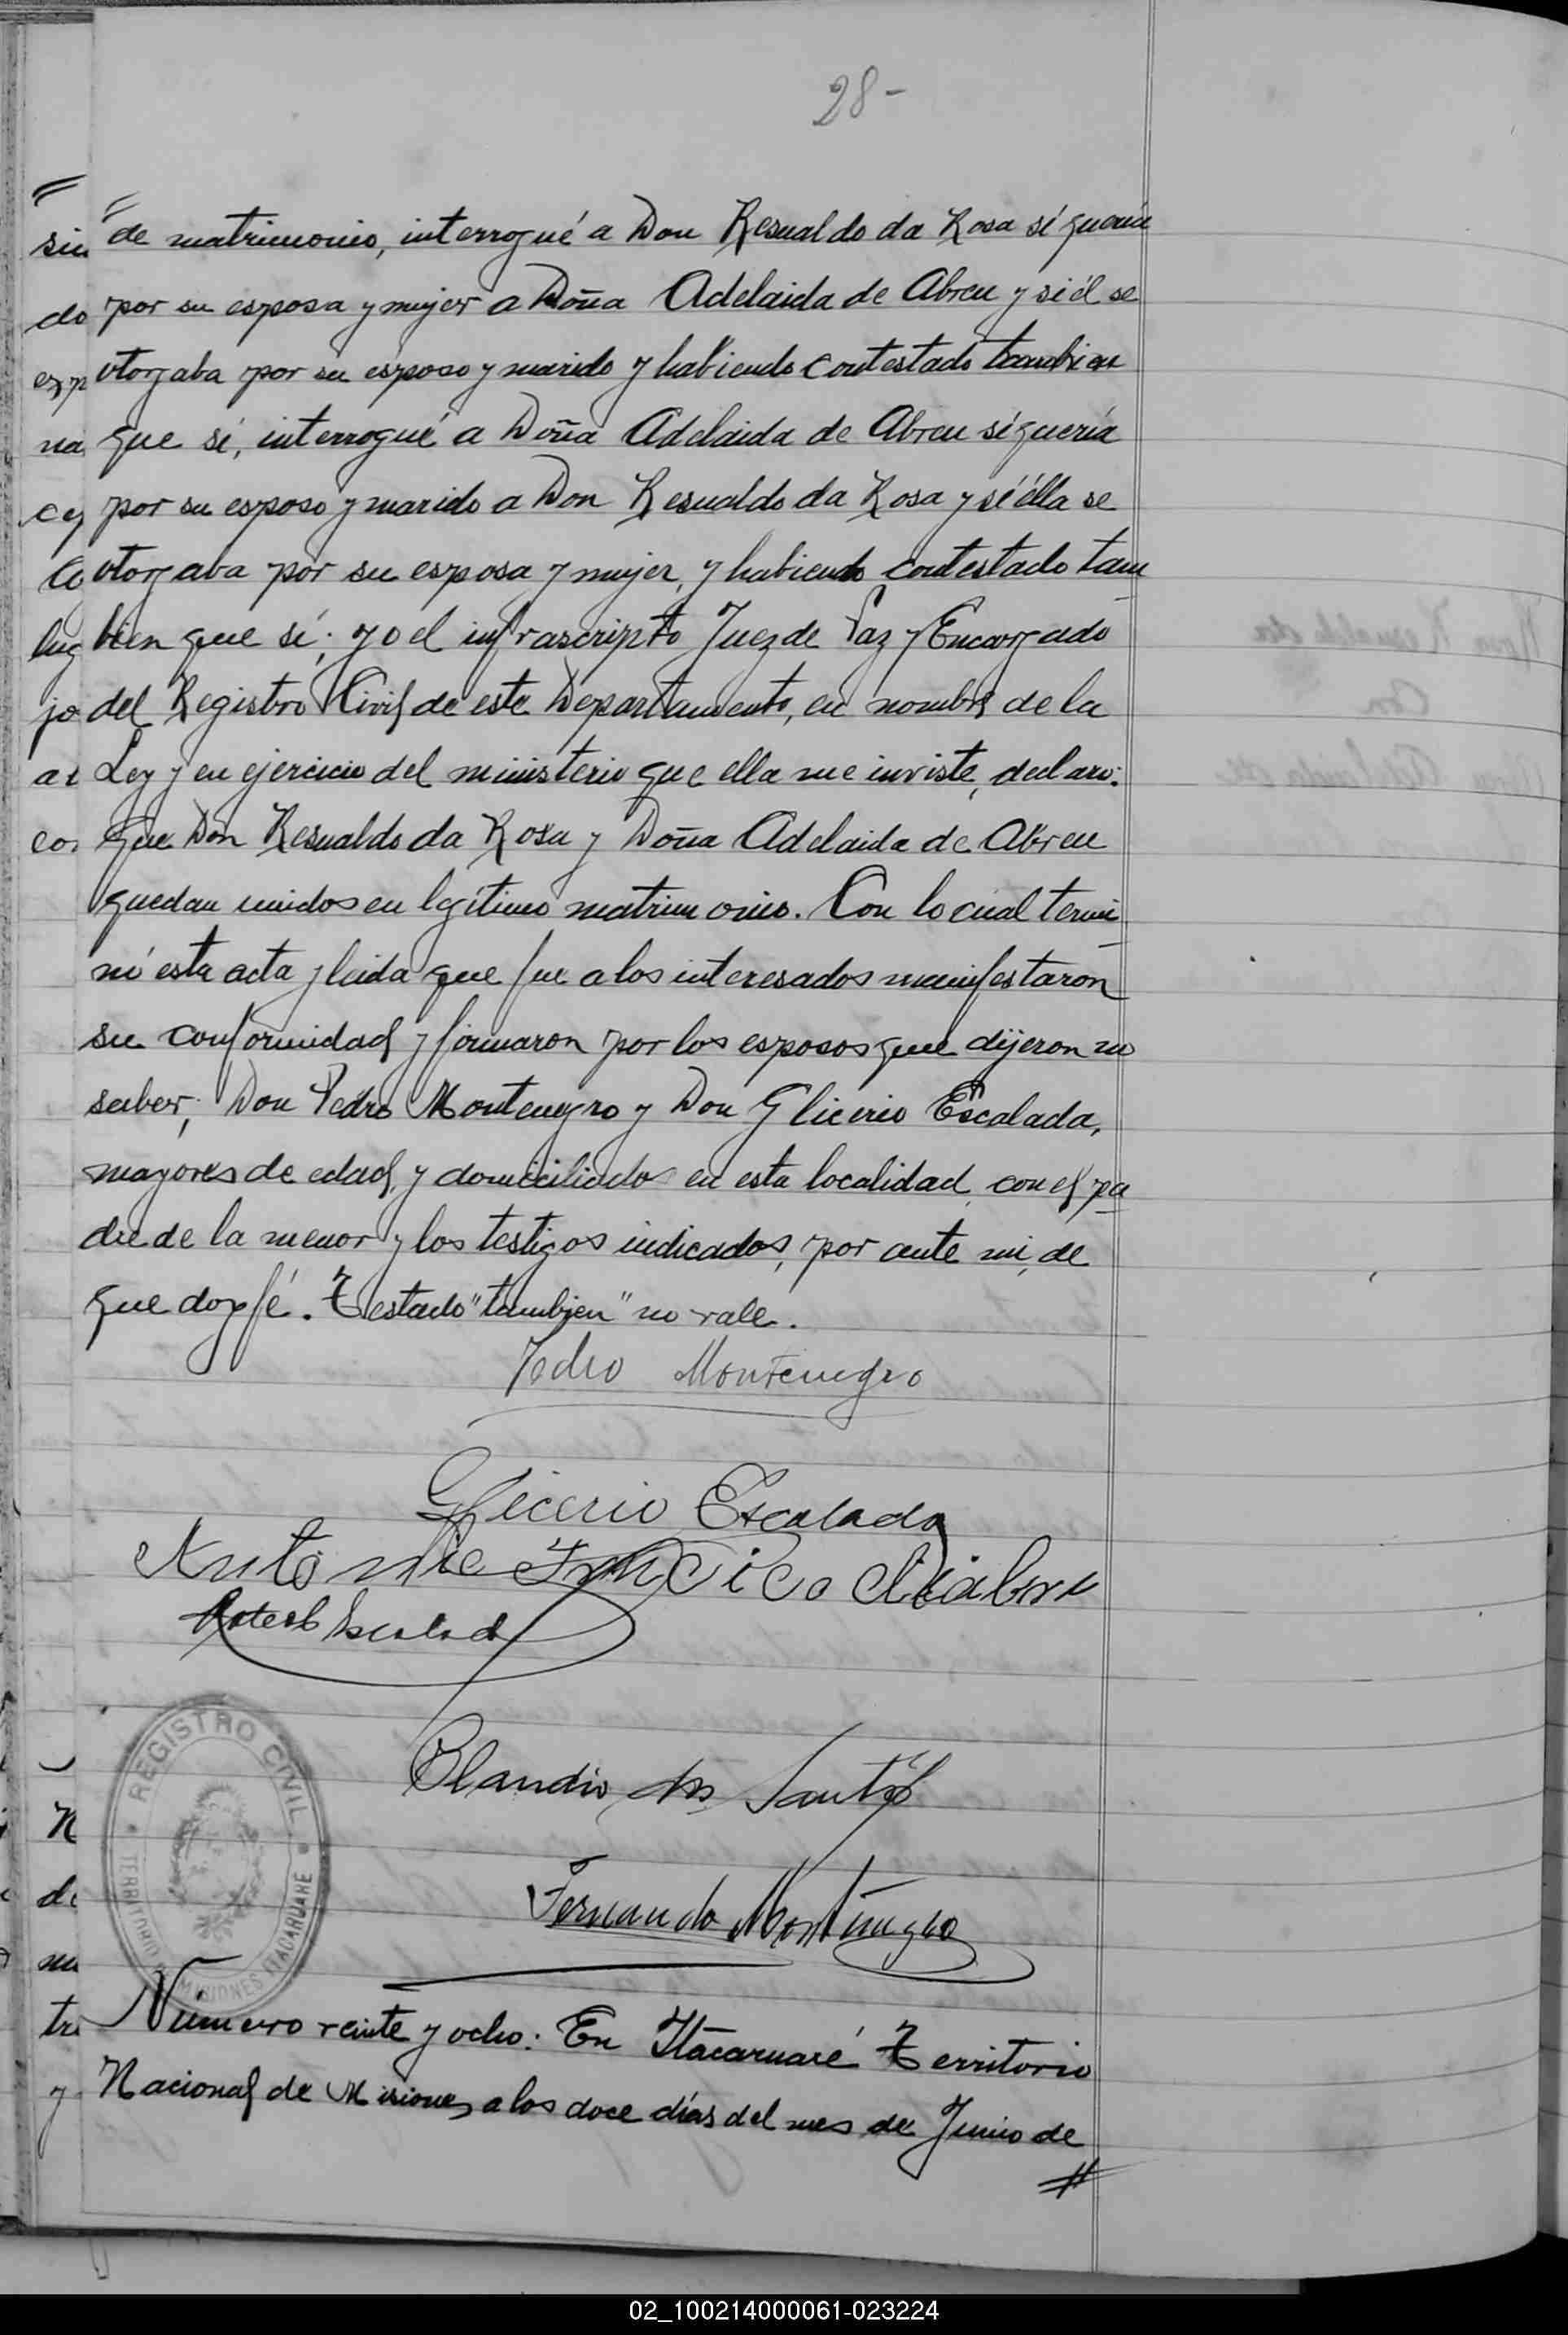 28-
de matrimonio, interrogué a Don Resualdo da Rosa sí quería
por su esposa y mujer a Doña Adelaida de Abreu y si él se
otorgaba por su esposo y marido y habiendo contestado tambien
que sí, interrogué a Doña Adelaida de Abreu sí quería
por su esposo y marido a Don Resualdo da Rosa y sí élla se
otorgaba por su esposa y mujer, y habiendo contestado tam
bien que sí; yo el infrascripto Juez de Paz y Encargado
del Registro Civil de este Departamento, en nombre de la
Ley y en ejercicio del ministerio que ella me inviste, declaro:
Que Don Resualdo da Rosa y Doña Adelaida de Abreu
quedan unidos en legítimo matrimonio. Con lo cual termi
nó esta acta y leida que fue a los interesados manifestaron
su conformidad y firmaron por los esposos que dijeron no
saber; Don Pedro Montenegro y Don Glicerio Escalada,
mayores de edad, y domiciliados en esta localidad, con el pa
dre de la menor y los testigos indicados, por ante mi, de
que doy fé. Testado "tambien" no vale.
Pedro Montenegro
Glicerio Escalada
Antonio
Escalada
REGISTRO CIVIL
TERRITORIO MISIONES ITACARUARÉ
Fernando Montenegro
Número veinte y ocho: En Itacaruaré Territorio
Nacional de Misiones a los doce días del mes de Junio de
02_100214000061-023224